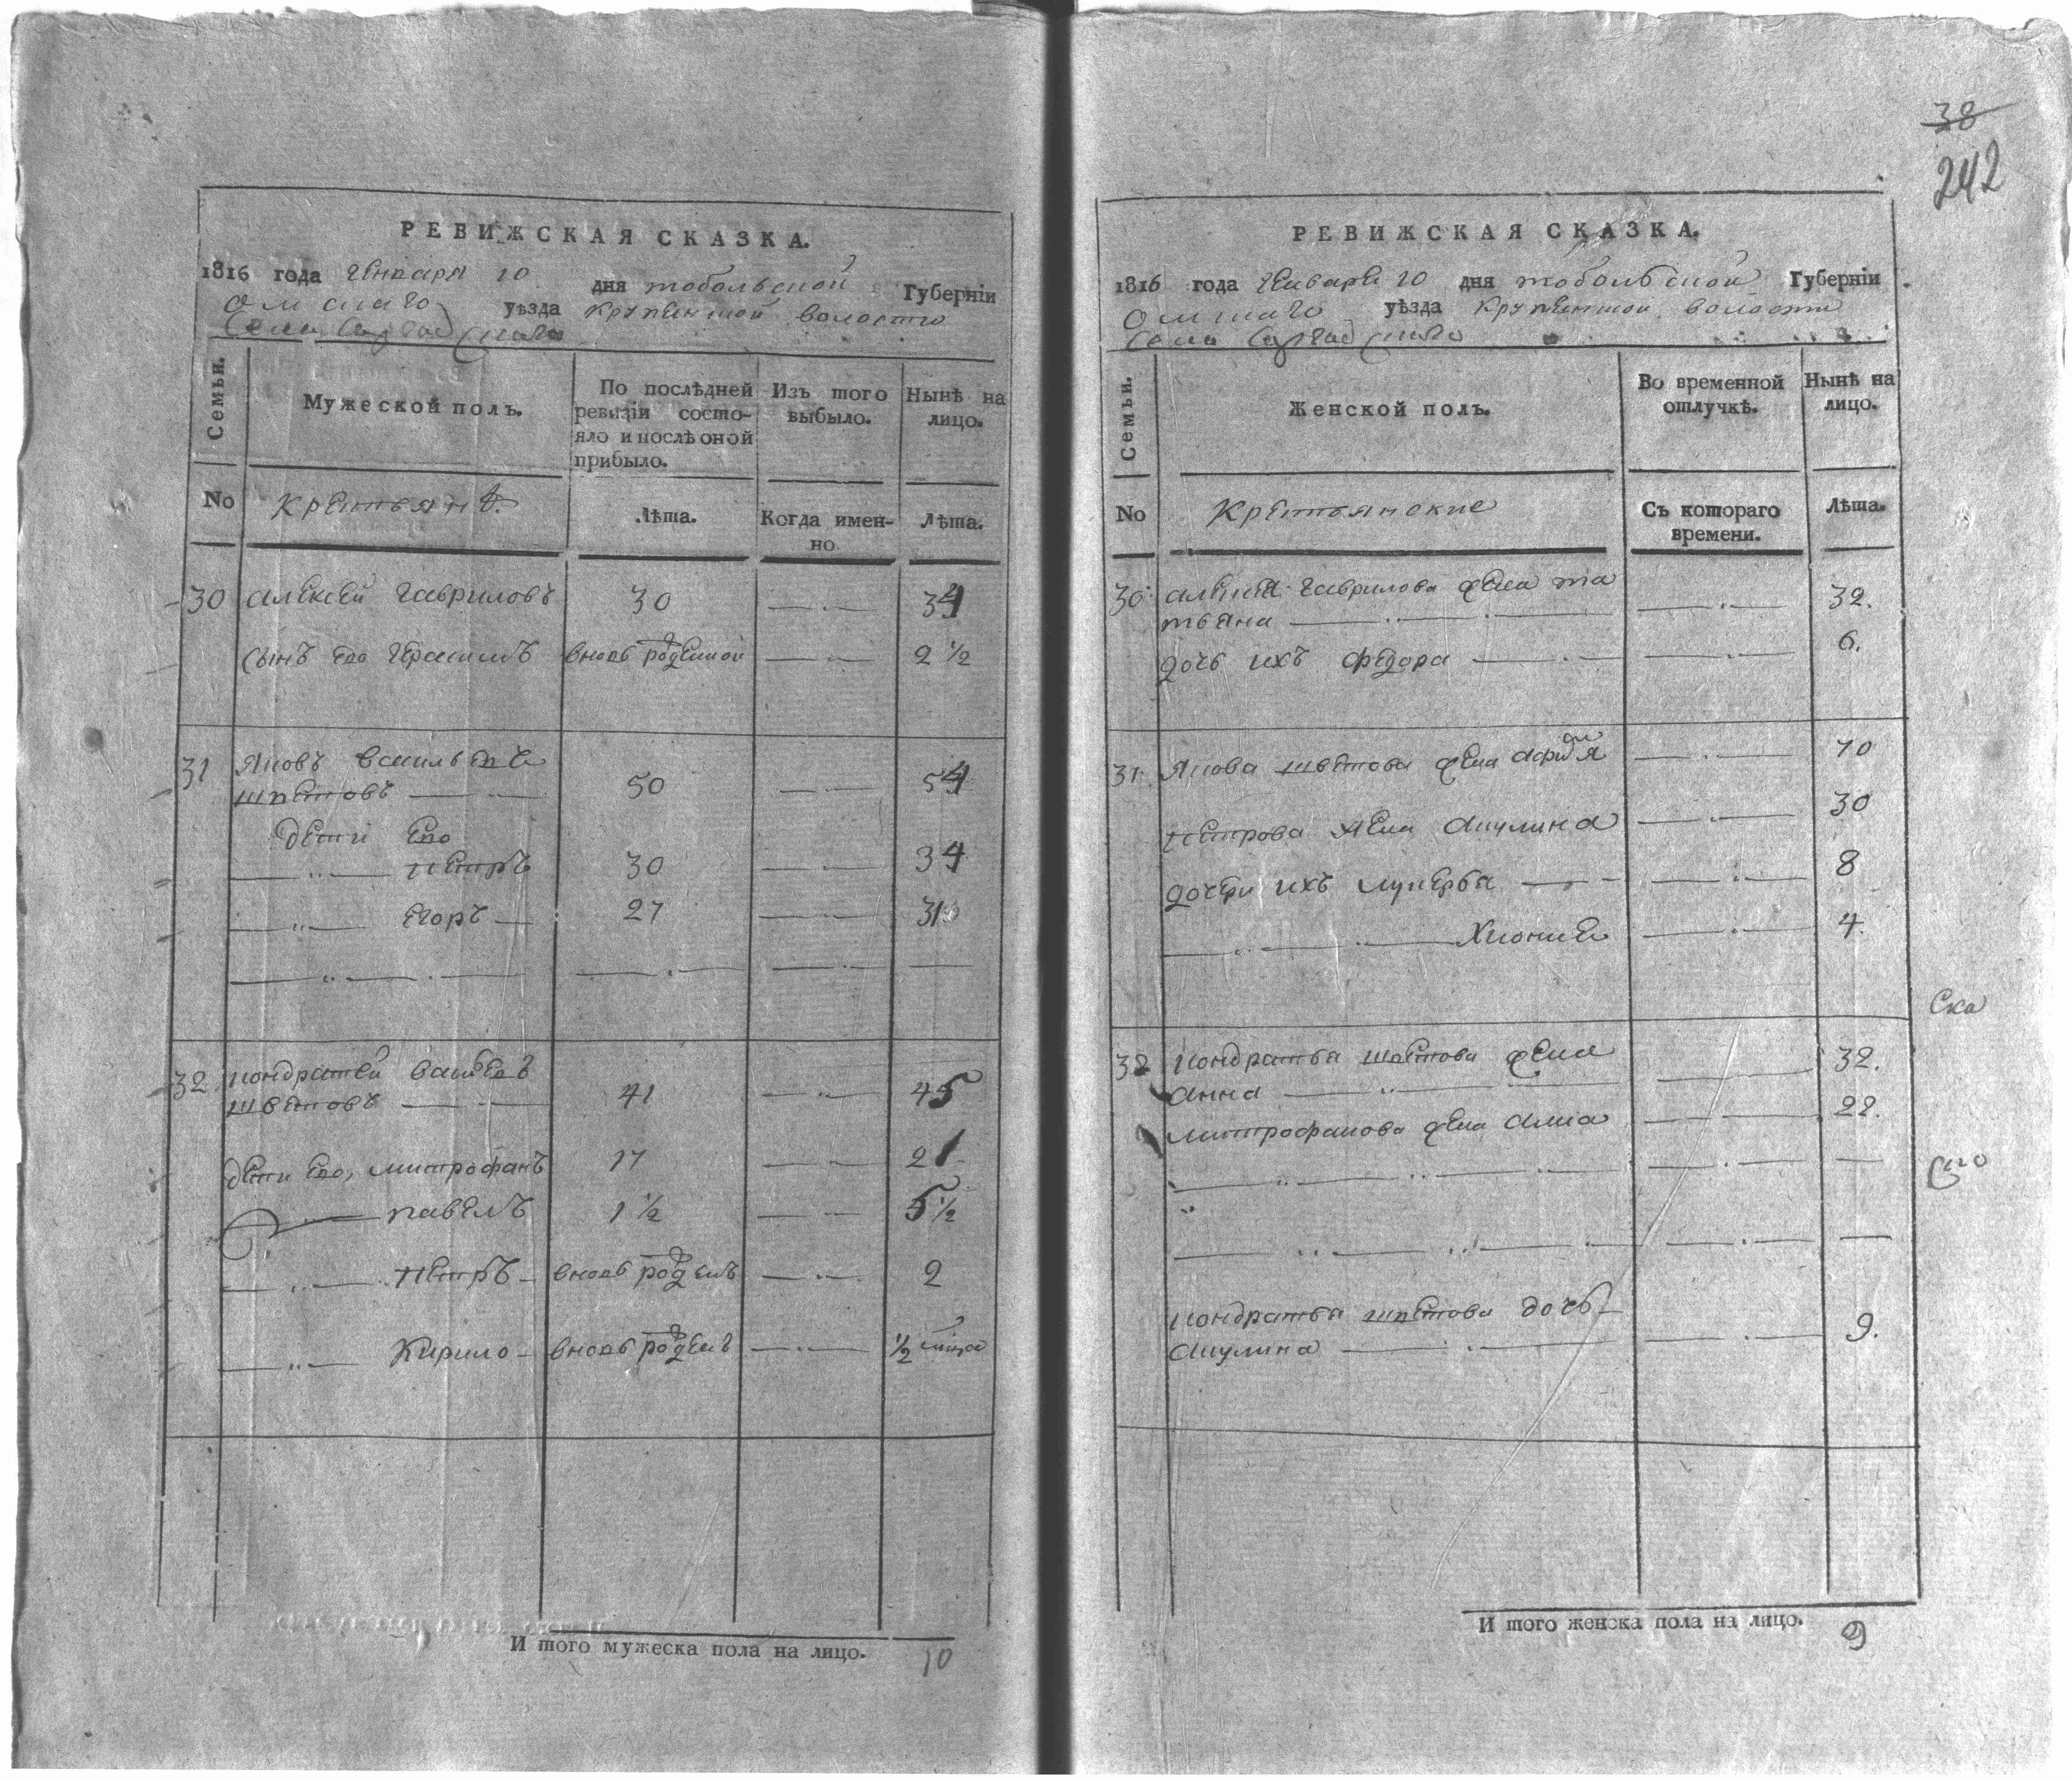 РЕВИЖСКАЯ СКАЗКА.
1816 года Генваря 10 дня тобольской Губерніи
омскаго уѣзда крупенской волости
Села
Семьи.
Мужеской полъ.
По послѣдней ревизіи состояло и послѣ оной прибыло.
Изъ того выбыло.
Нынѣ на лицо.
No
крестьянъ.
Лѣта.
Когда именно.
Лѣта.
30 алексей гавриловъ 30 34
сынъ ево герасимъ вновь рожденной 2 1/2
31 Яковъ васильевъ
шветовъ 50 54
дети ево
петръ 30 34
егоръ 27 31
32 кондратей васильевъ
шветовъ 41 45
дети ево, митрофанъ 17 21
павелъ 1 1/2 5 1/2
петръ вновь рожденъ 2
Кирило вновь рожденъ 1/2
И того мужеска пола на лицо. 10
38
242
РЕВИЖСКАЯ СКАЗКА.
1816 года Генваря 10 дня тобольской Губерніи
омскаго уѣзда крупенской волости
Села
Семьи.
Женской полъ.
Во временной отлучкѣ.
Нынѣ на лицо.
No
Крестьянские
Съ котораго времени.
Лѣта.
30 алексея гаврилова жена та
тьяна 32.
дочь ихъ федора 6.
31 Якова шветова жена 70
петрова жена акулина 30
дочери ихъ лукерья 8
Хиония 4
32 кондратья шветова жена
анна 32.
митрофанова жена анна 22.
кондратья шветова дочь
акулина 9.
Ска
И того женска пола на лицо. 9